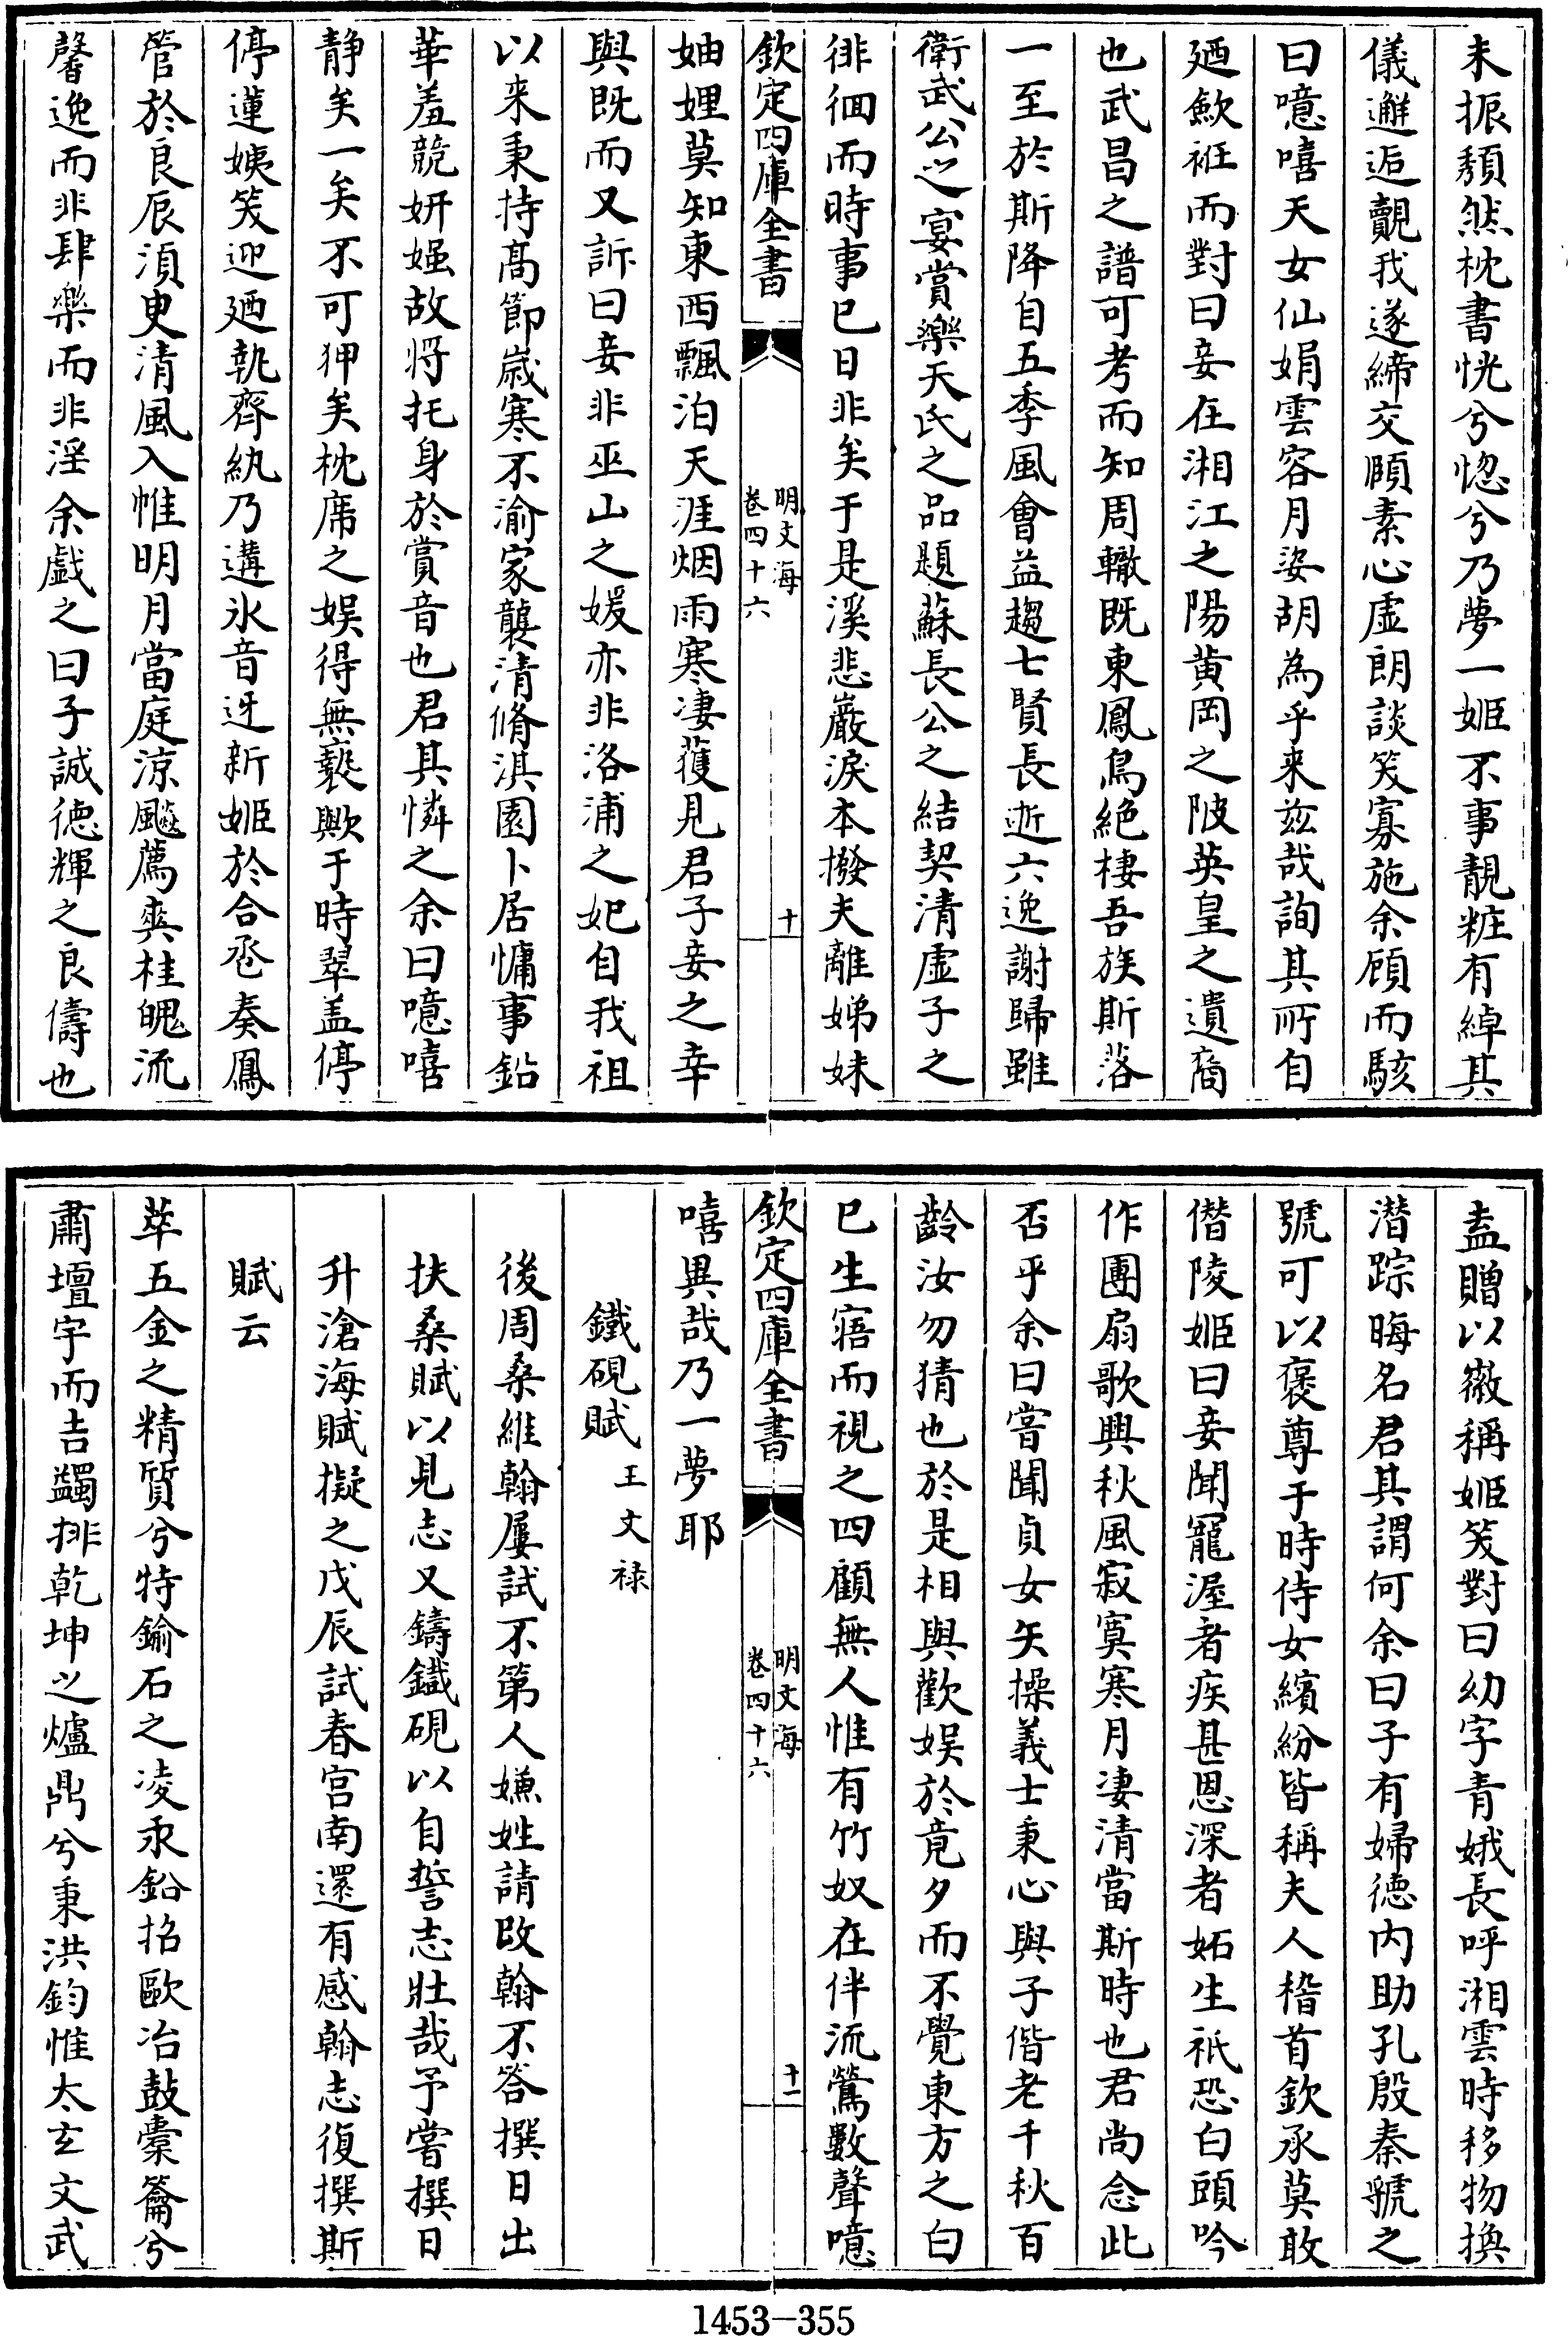 未振頽然枕書恍兮惚兮乃夢一姬不事靚粧有綽其
儀邂逅覿我遂締交頥素心虛朗談笑寡施余顧而駭
曰噫嘻天女仙娟雲容月姿胡為乎来玆哉詢其所自
廼歛袵而對曰妾在湘江之陽黄岡之陂英皇之遺裔
也武昌之譜可考而知周轍既東鳳鳥絶棲吾族斯落
一至於斯降自五季風會益趨七賢長逝六逸謝歸雖
衛武公之宴賞樂天氏之品題蘇長公之結契清虛子之
徘徊而時事已日非矣于是溪悲巖淚本撥夫離娣妹
欽定四庫全書
明文海
卷四十六
十
妯娌莫知東西飄泊天涯烟雨寒凄獲見君子妾之幸
與既而又訴曰妾非巫山之媛亦非洛浦之妃自我祖
以来秉持髙節嵗寒不渝家襲清脩淇園卜居慵事鉛
華羞競妍嫿故将托身於賞音也君其憐之余曰噫嘻
静矣一矣不可狎矣枕席之娱得無褻歟于時翠盖停
停蓮姨笑迎廼執齊紈乃遘氷音迓新姬於合卺奏鳳
管於良辰湏臾清風入帷明月當庭涼飈薦爽桂魄流
馨逸而非肆樂而非淫余戯之曰子誠徳輝之良儔也
盍贈以徽稱姬笑對曰幼字青娥長呼湘雲時移物換
潜踪晦名君其謂何余曰子有婦徳内助孔殷秦虢之
號可以褒尊于時侍女繽紛皆稱夫人稽首欽承莫敢
僭陵姬曰妾聞寵渥者疾甚恩深者妬生祇恐白頭吟
作團扇歌興秋風寂寞寒月凄清當斯時也君尚念此
否乎余曰甞聞貞女矢操義士秉心與子偕老千秋百
齡汝勿猜也於是相與歡娱於竟夕而不覺東方之白
已生寤而視之四顧無人惟有竹奴在伴流鶯數聲噫
欽定四庫全書
明文海
卷四十六
十一
嘻異哉乃一夢耶
鐵硯賦 王文禄
後周桑維翰屢試不第人嫌姓請改翰不答撰日出
扶桑賦以見志又鑄鐵硯以自誓志壯哉予嘗撰日
升滄海賦擬之戊辰試春宫南還有感翰志復撰斯
賦云
萃五金之精質兮特鍮石之凌汞鉛招歐冶鼓橐籥兮
肅壇宇而吉蠲排乾坤之爐鼎兮秉洪鈞惟太玄文武
1453—355